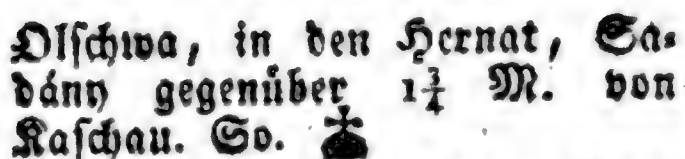 Olſchwa, in den Hernat, Sa⸗
dány gegenüber 1¾ M. von
Kaſchau. So.